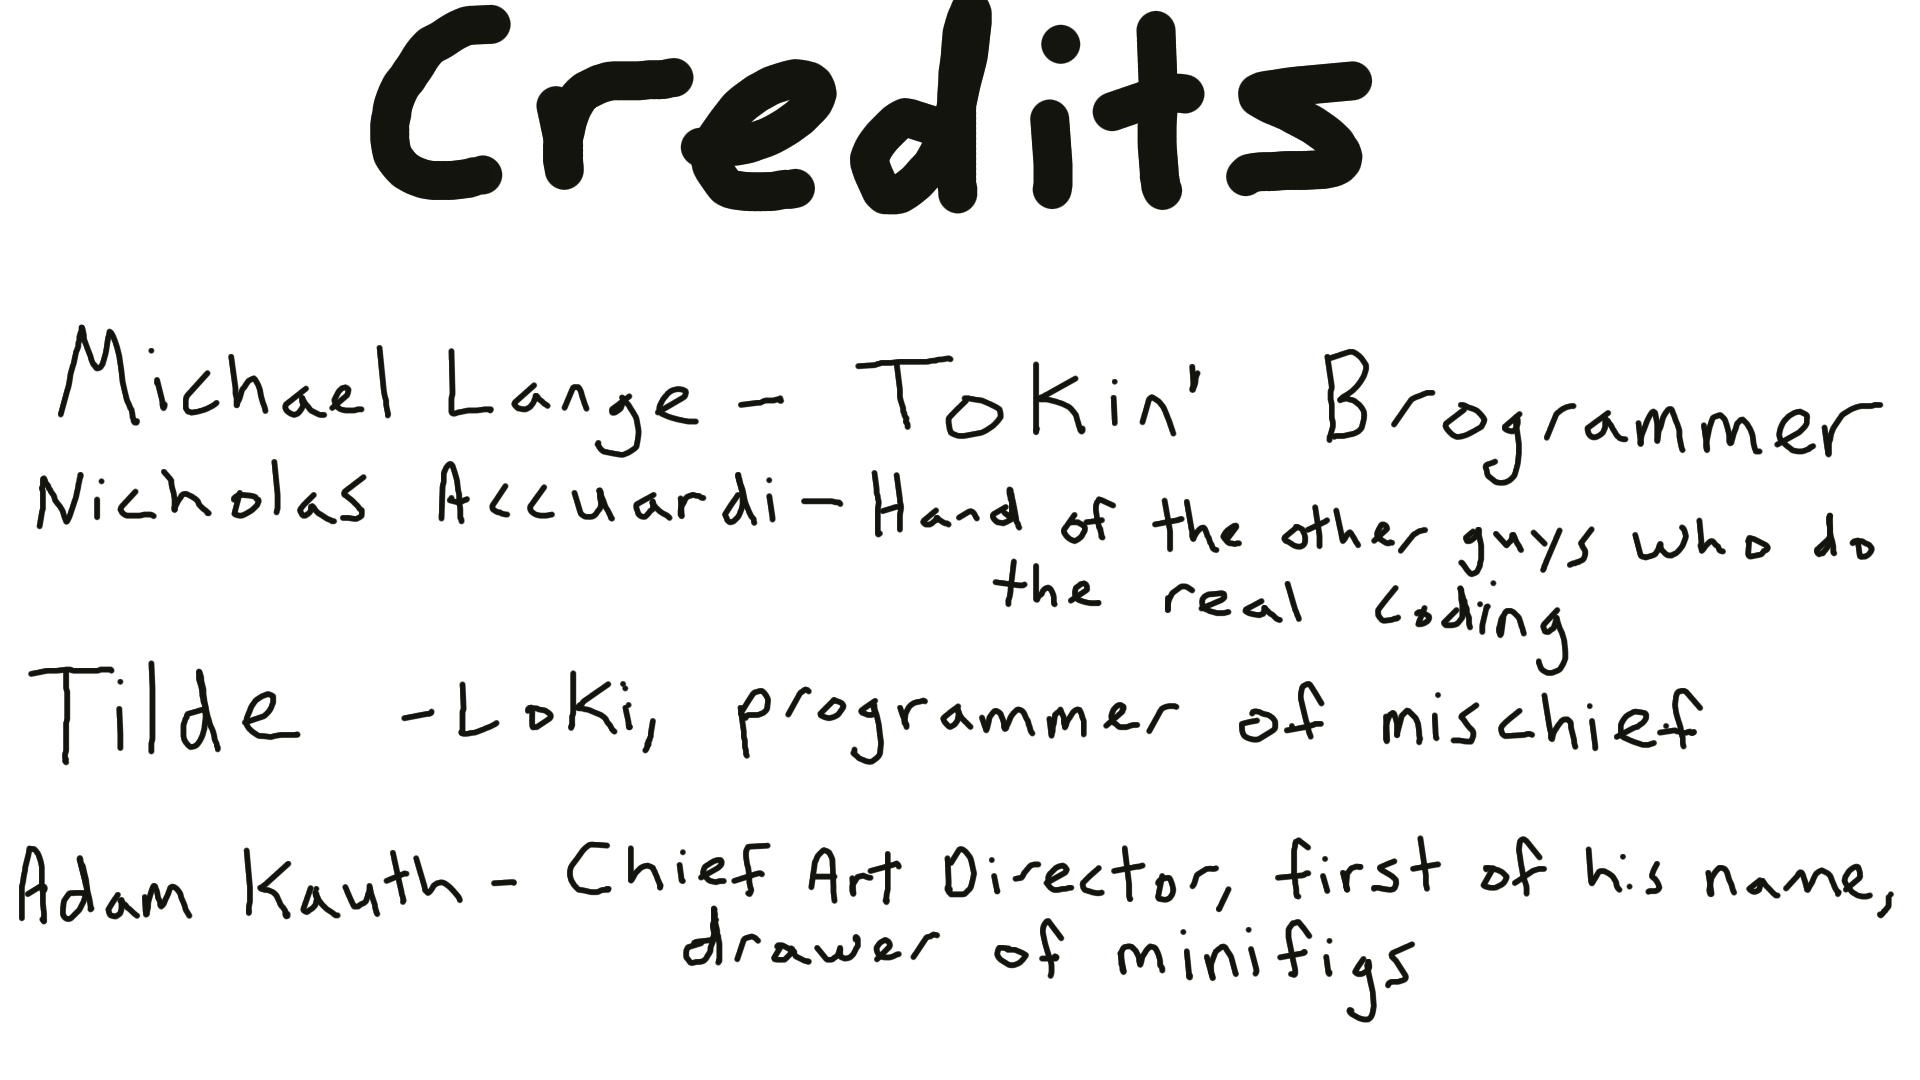 Credits
Michael Lange - Tokin' Brogrammer
Nicholas Accuardi - Hand of the other guys who do
the real coding
Tilde - Loki, programmer of mischief
Adam Kauth - Chief Art Director, first of his name,
drawer of minifigs